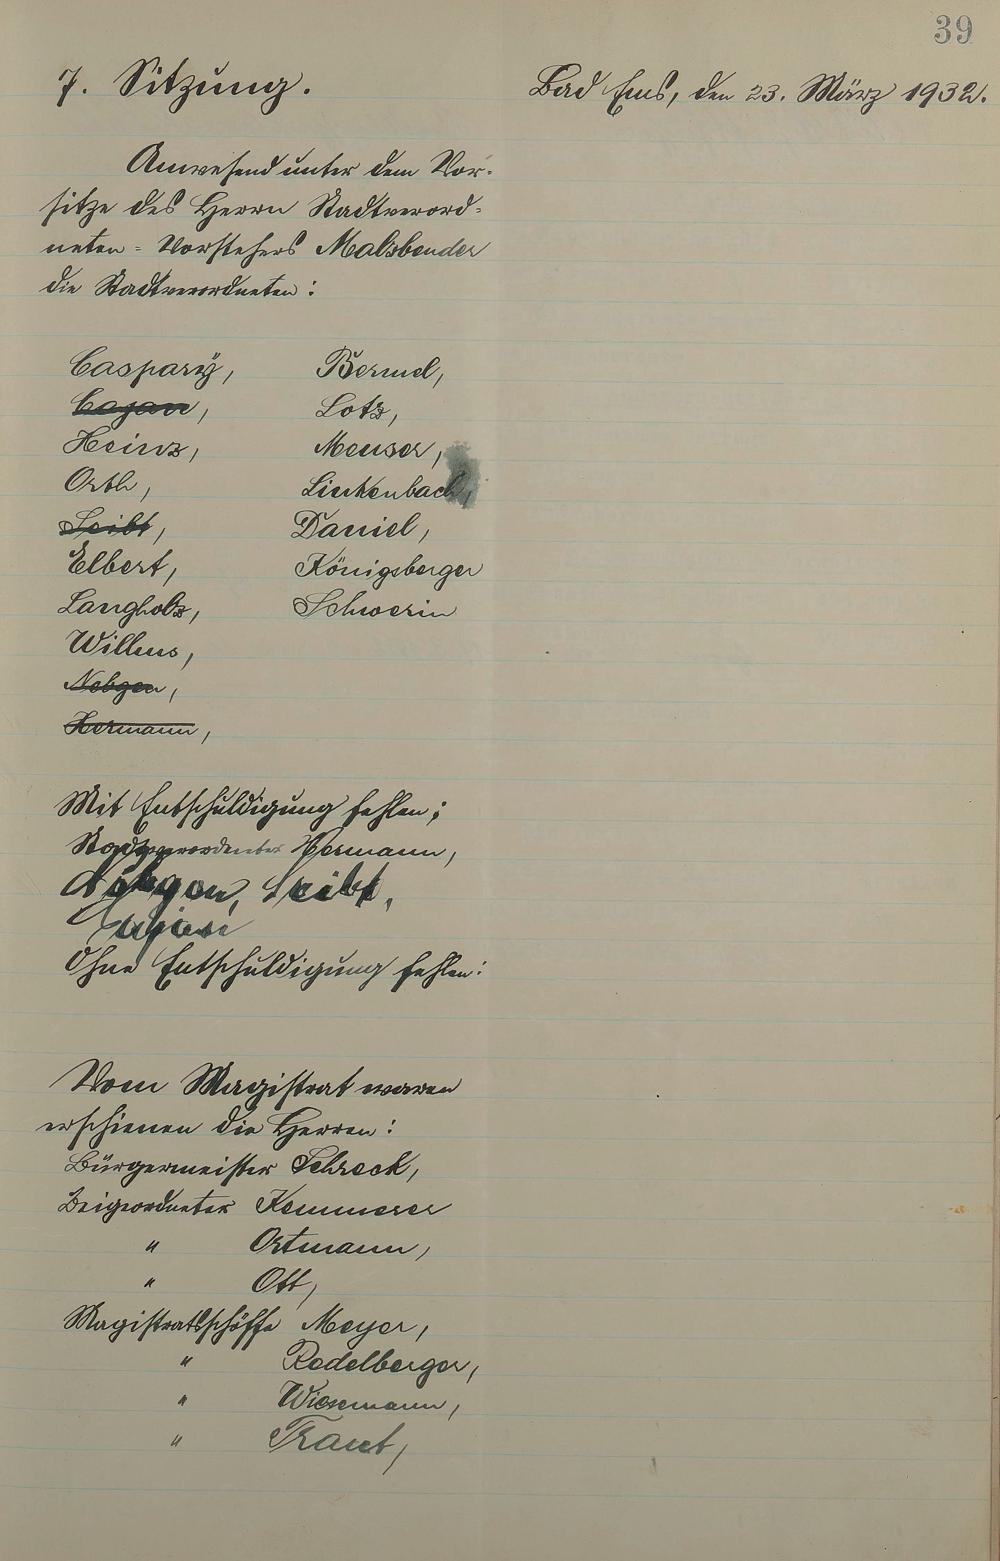 39
7. Sitzung. Bad Ems, den 23. März 1932.
Anwesend unter dem Vor-
sitze des Herrn Stadtverord-
neten-Vorstehers Malsbender
die Stadtverordneten:
Caspary, Bermel,
Cajan, Lotz,
Heinz, Meuser,
Orth, Linkenbach,
Seibt, Daniel,
Elbert, Königsberger
Langholz, Schwerin
Willms,
Nebgen,
Hermann,
Mit Entschuldigung fehlen:
Stadtverordneter Hermann,
Nebgen, Seibt,
Ohne Entschuldigung fehlen:
Vom Magistrat waren
erschienen die Herren:
Bürgermeister Schreck,
Beigeordneter Kemmerer
" Ortmann,
" Ott,
Magistratsschöffe Meyer,
" Rodelberger,
" Wiesemann,
" Traut,